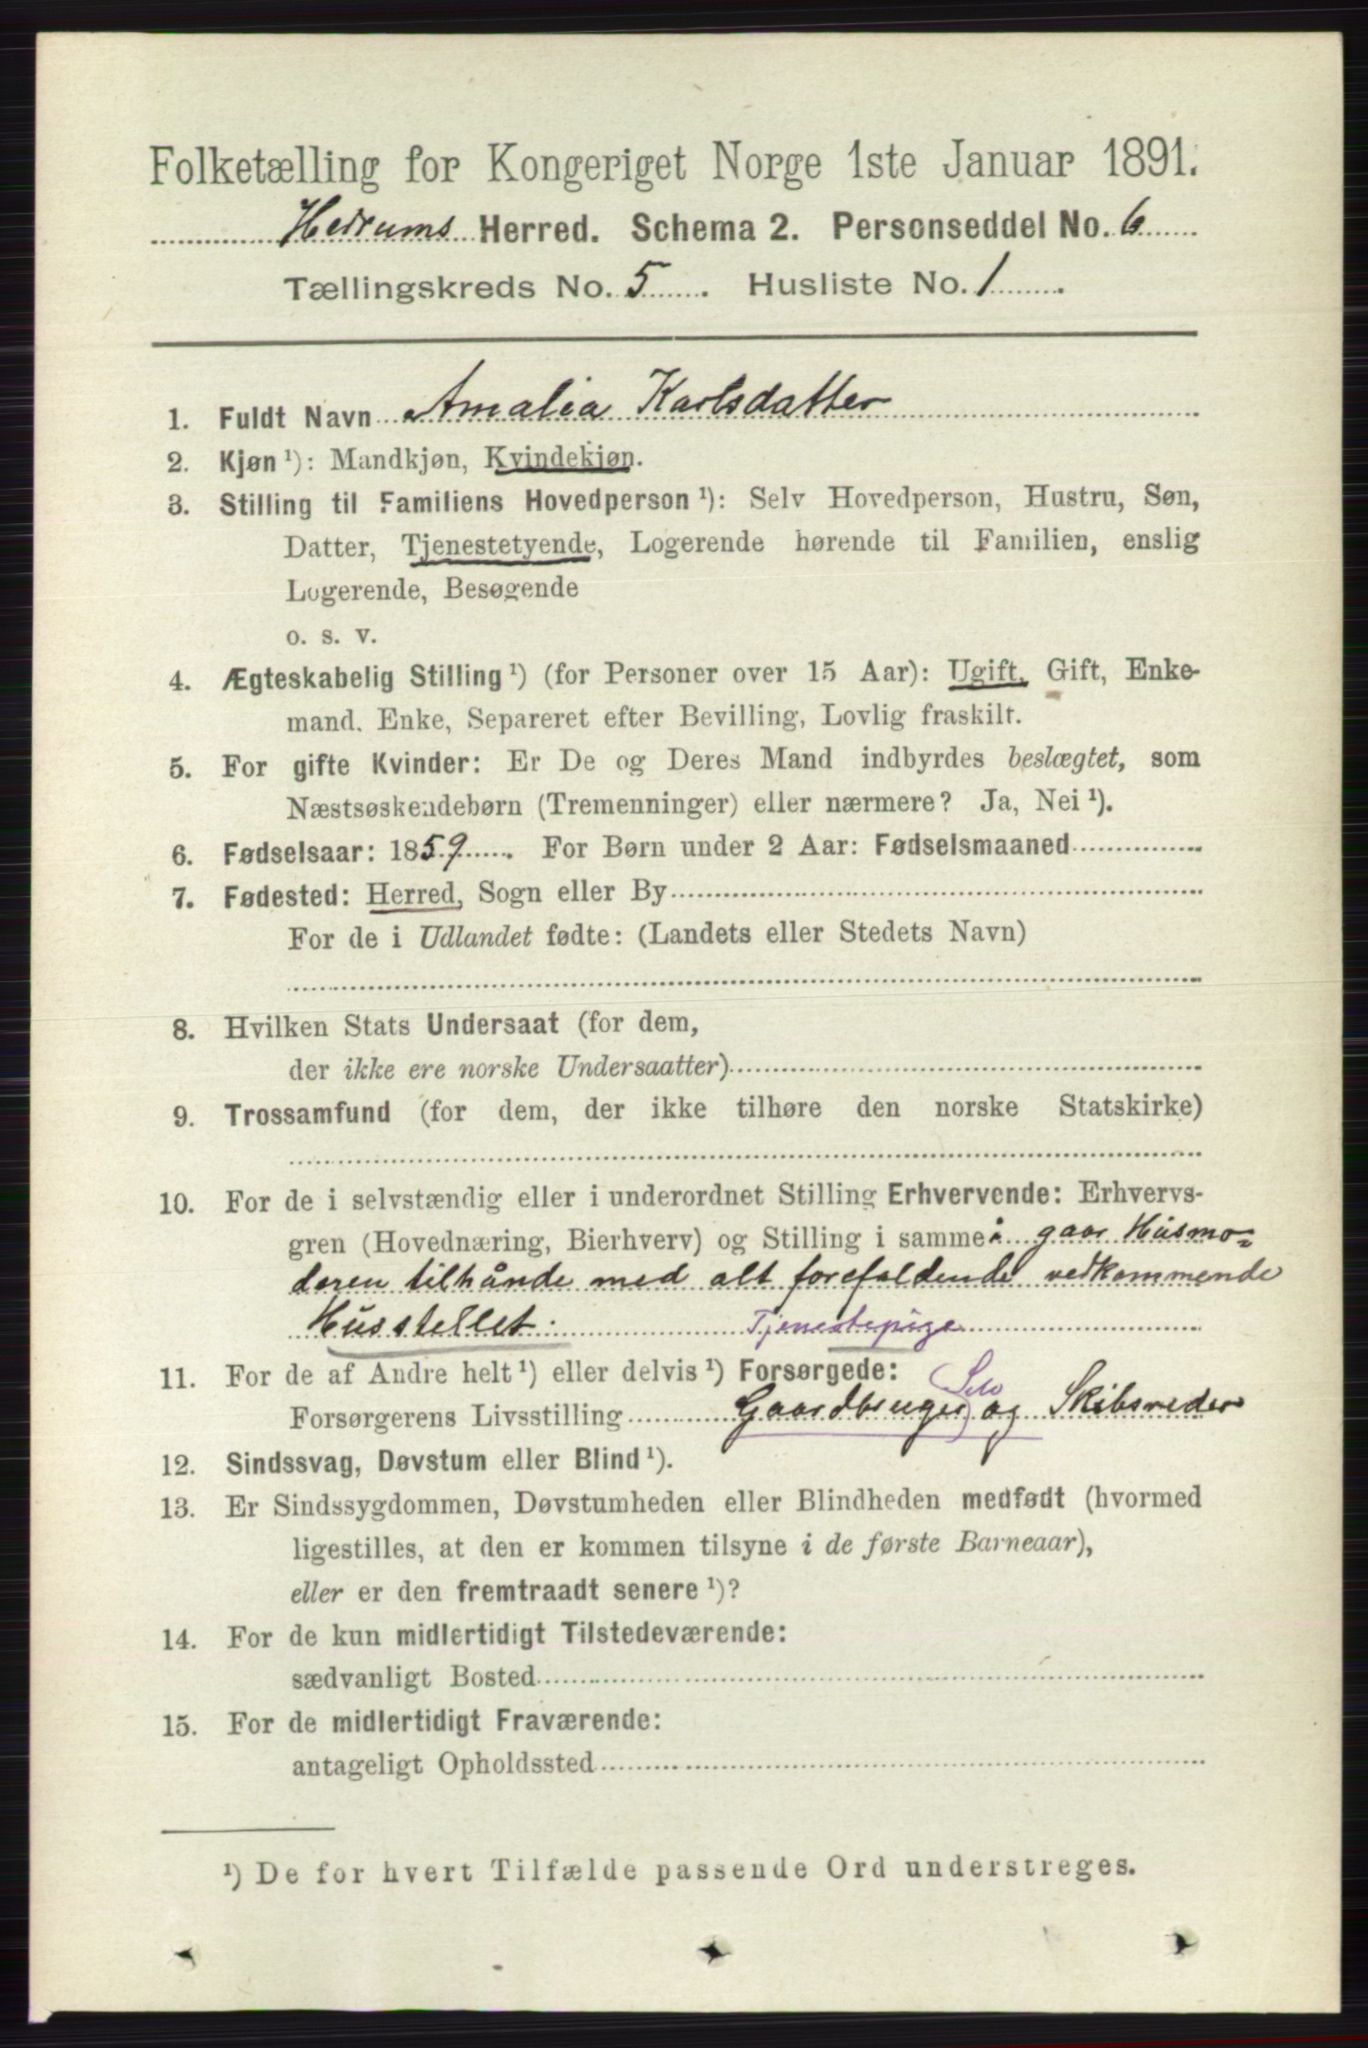 Folketælling for Kongeriget Norge 1ste Januar 1891.
Hedrums Herred. Schema 2. Personseddel No. 6
Tællingskreds No. 5. Husliste No. 1.
1. Fuldt Navn Amalia Karlsdatter
2. Kjøn ¹): Mandkjøn, Kvindekjøn.
3. Stilling til Familiens Hovedperson ¹): Selv Hovedperson, Hustru, Søn,
Datter, Tjenestetyende, Logerende hørende til Familien, enslig
Logerende, Besøgende
o. s. v.
4. Ægteskabelig Stilling ¹) (for Personer over 15 Aar): Ugift, Gift, Enke-
mand, Enke, Separeret efter Bevilling, Lovlig fraskilt.
5. For gifte Kvinder: Er De og Deres Mand indbyrdes beslægtet, som
Næstsøskendebørn (Tremenninger) eller nærmere? Ja, Nei ¹).
6. Fødselsaar: 1859. For Børn under 2 Aar: Fødselsmaaned
7. Fødested: Herred, Sogn eller By
For de i Udlandet fødte: (Landets eller Stedets Navn)
8. Hvilken Stats Undersaat (for dem,
der ikke ere norske Undersaatter)
9. Trossamfund (for dem, der ikke tilhøre den norske Statskirke)
10. For de i selvstændig eller i underordnet Stilling Erhvervende: Erhvervs-
gren (Hovednæring, Bierhverv) og Stilling i samme: gaar Husmo=
deren tilhånde med alt forefaldende vedkommende
Husstellet. Tjenestepige
11. For de af Andre helt ¹) eller delvis ¹) Forsørgede: Selv
Forsørgerens Livsstilling Gaardbruger og Skibsreder
12. Sindssvag, Døvstum eller Blind ¹).
13. Er Sindssygdommen, Døvstumheden eller Blindheden medfødt (hvormed
ligestilles, at den er kommen tilsyne i de første Barneaar),
eller er den fremtraadt senere ¹)?
14. For de kun midlertidigt Tilstedeværende:
sædvanligt Bosted
15. For de midlertidigt Fraværende:
antageligt Opholdssted
¹) De for hvert Tilfælde passende Ord understreges.